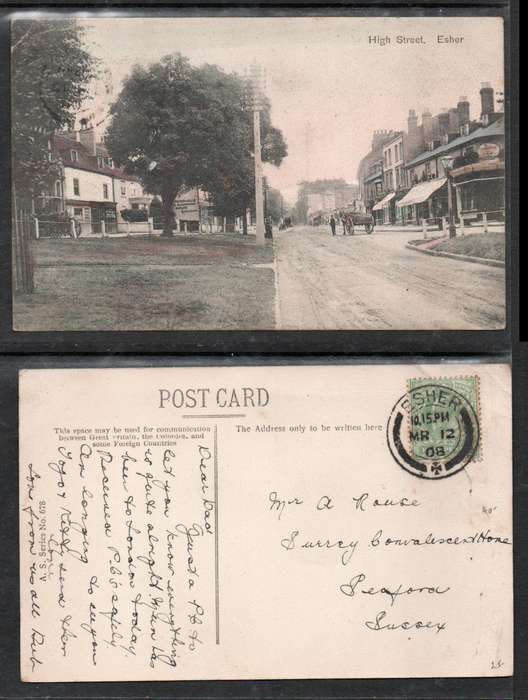 High Street, Esher
POST CARD
This space may be used for communication
between Great Britain, the Colonies, and
some Foreign Countries
The Address only to be written here
ESHER
10.15 PM
MR 12
08
Mr A Rouse
Surrey Convalescent Home
Seaford
Sussex
Dear Dad
Just a P.C to
let you know everything
is quite alright Mum has
been to London today
Received P.C's safely.
Am longing to see you
Toys & Kitty send their
Love
Love from us all Rub
V. S. Series No. 528
2/-